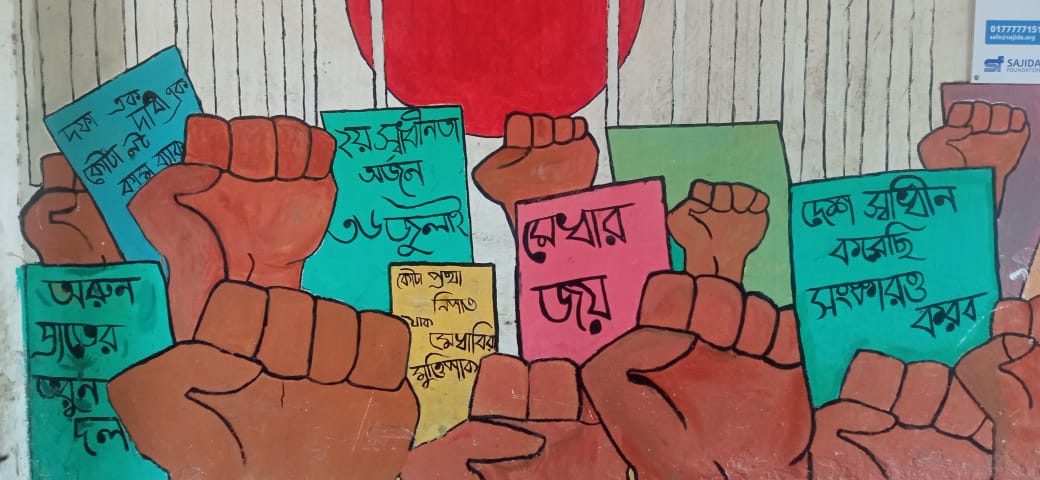 দফা এক
দাবি এক
কোটা নট
কাম ব্যাক
২য় স্বাধীনতা
অর্জনে
৩৬ জুলাই
মেধার
জয়
দেশ স্বাধীন
করেছি
সংস্কারও
করব
অরুন
প্রাতের
তরুন
দল
কোটা প্রথা
নিপাত
যাক
মেধাবিরা
মুক্তিপাক
0177777151
safe@sajida.org
SAJIDA
FOUNDATION